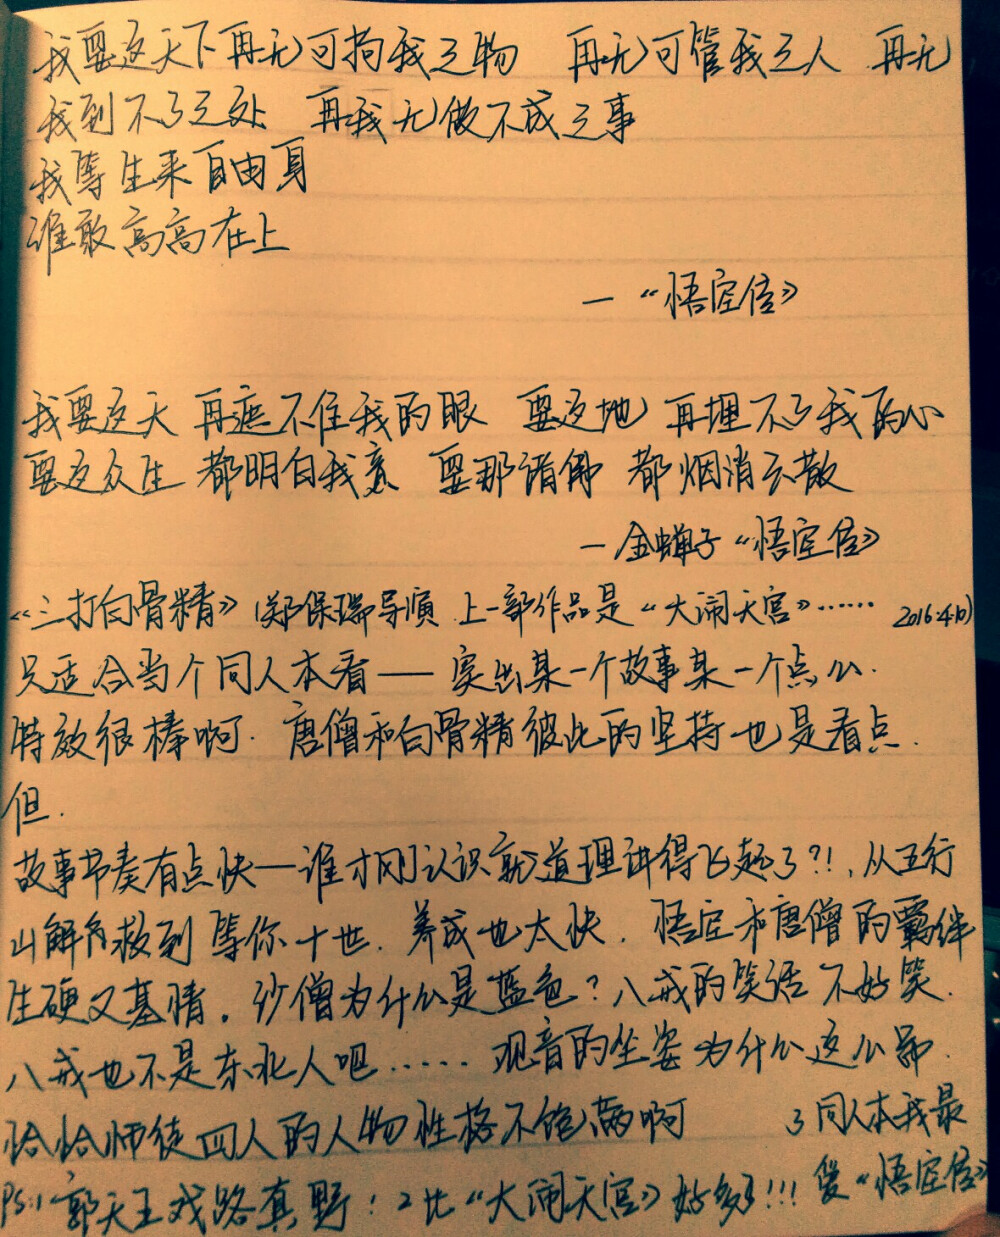 我要这天下再无可拘我之物 再无可管我之人 再无
我到不了之处 再我无做不成之事
我等生来自由身
谁敢高高在上
—《悟空传》
我要这天 再遮不住我的眼 要这地 再埋不了我的心
要这众生 都明白我意 要那诸佛 都烟消云散
—金蝉子《悟空传》
《三打白骨精》(郑保瑞导演 上一部作品是《大闹天宫》…… 2016.4.10)
只适合当个同人本看——突出某一个故事某一个点么.
特效很棒啊. 唐僧和白骨精彼此的坚持也是看点.
但.
故事节奏有点快—谁才刚认识就道理讲得飞起了?!, 从五行
山解救到等你十世. 养成也太快. 悟空和唐僧的羁绊
生硬又基情。沙僧为什么是蓝色? 八戒的笑话不好笑.
八戒也不是东北人吧…… 观音的坐姿为什么这么
恰恰师徒四人的人物性格不饱满啊
PS:1 郭天王戏路真野! 2 比《大闹天宫》好多了!!! 3 同人本我最
爱《悟空传》